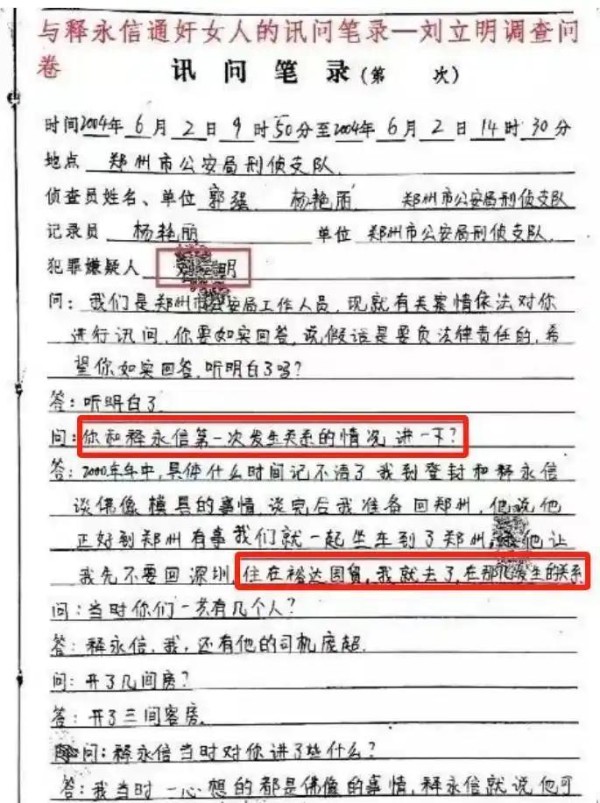 与释永信通奸女人的讯问笔录—刘立明调查问
卷
讯问笔录(第 次)
时间2004年6月2日9时50分至2004年6月2日14时30分
地点 郑州市公安局刑侦支队
侦查员姓名、单位 郭强 杨艳丽 郑州市公安局刑侦支队
记录员 杨艳丽 单位 郑州市公安局刑侦支队
犯罪嫌疑人 明
问:我们是郑州市公安局工作人员,现就有关案情依法对你
进行讯问,你要如实回答,说假话是要负法律责任的,希
望你如实回答,听明白了吗?
答:听明白了
问:你和释永信第一次发生关系的情况讲一下?
答:2000年年中,具体什么时间记不清了我到登封和释永信
谈佛像模具的事情,谈完后我准备回郑州,他说他
正好到郑州有事我们就一起坐车到了郑州,他让
我先不要回深圳,住在裕达国贸,我就去了,在那儿发生的关系
问:当时你们一共有几个人?
答:释永信,我,还有他的司机庞超.
问:开了几间房?
答:开了三间客房.
问:释永信当时对你讲了些什么?
答:我当时一心想的都是佛像的事情,释永信就说他可